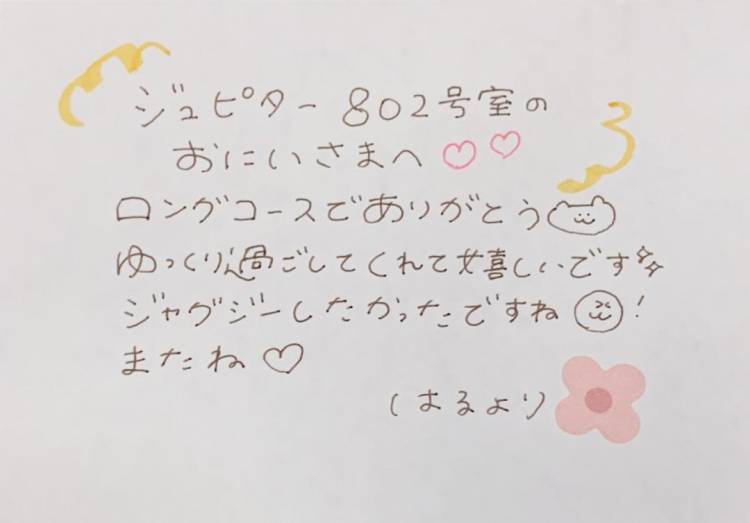 ジュピター802号室の
おにいさまへ♡♡
ロングコースでありがとう
ゆっくり過ごしてくれて嬉しいです
ジャグジーしたかったですね！
またね♡
はるより